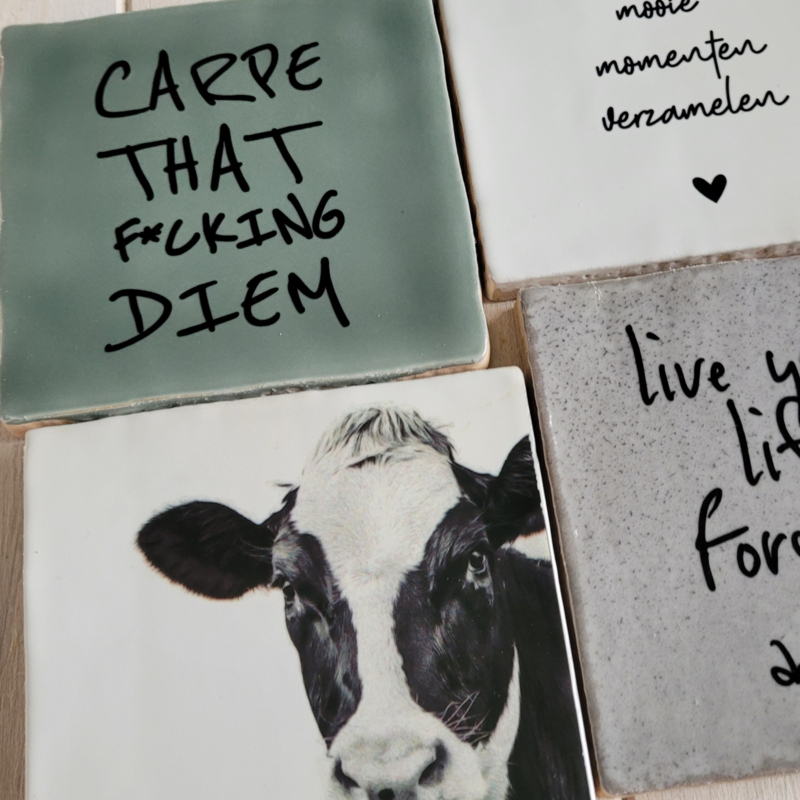 CARPE
THAT
F*CKING
DIEM
mooie
momenten
verzamelen
live